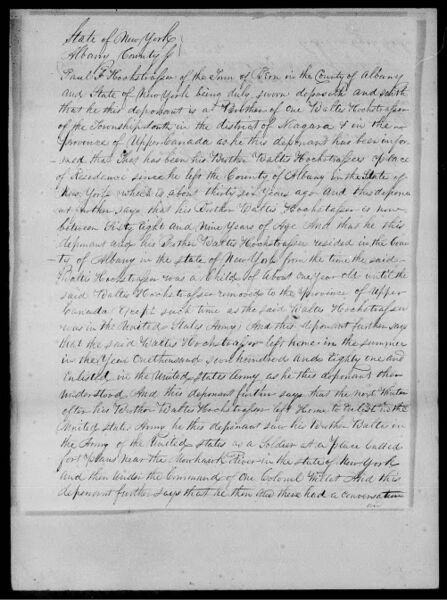 State of New York
Albany County }
Paul F Hochstrasser of the Town of Bern in the County of Albany
and State of New York being duly sworn deposeth and saith
that he this deponant is a Brother of One Walter Hochstrasser
of the Township South in the district of Niagara & in the
province of Upper Canada as he this deponant has been infor
med that Thas has been his Brother Walter Hochstrassers place
of Residence since he left the County of Albany in the State of
New York which is about thirty six Years ago And this depona
nt further says that his Brother Walter Hochstasser is now
between Sixty eight and Nine Years of Age And that he this
deponant and his Brother Walter Hochstrasser resided in the Coun
ty of Albany in the state of New York from the time the said
Walter Hochstrasser was a Child of About one year old until he
said Walter Hochstrasser removed to the Province of Upper
Canada Except such time as the said Walter Hochstrasser
was in the United States Army And this deponant further says
that the said Walter Hochstrasser left home in the summer
in the Year One thousand Seven hundred and Eighty one and
Enlisted in the United States Army as he this deponant then
understood And this deponant further says that the next Winter
after his Brother Walter Hochstrasser left Home to Enlist in the
United States Army he this deponant saw his Brother Walter in
the Army of the United States as a Soldier at a place Called
fort plain near the Mowhawk River in the state of New York
and then Under the Command of One Colonel Willet And this
deponant further says that he then and there had a conversation